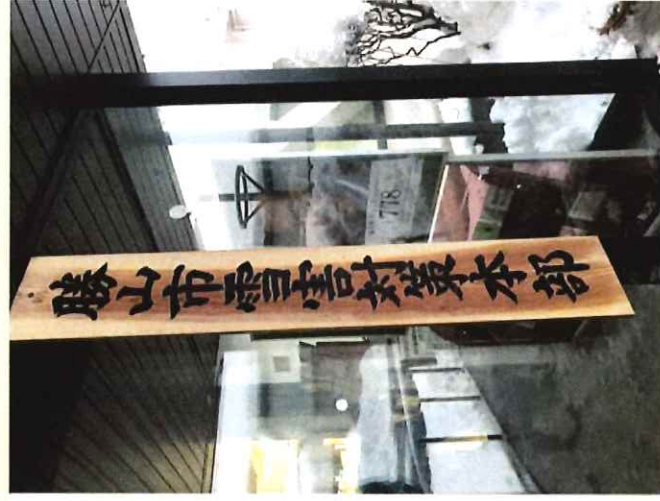 勝山市雪害対策本部
778